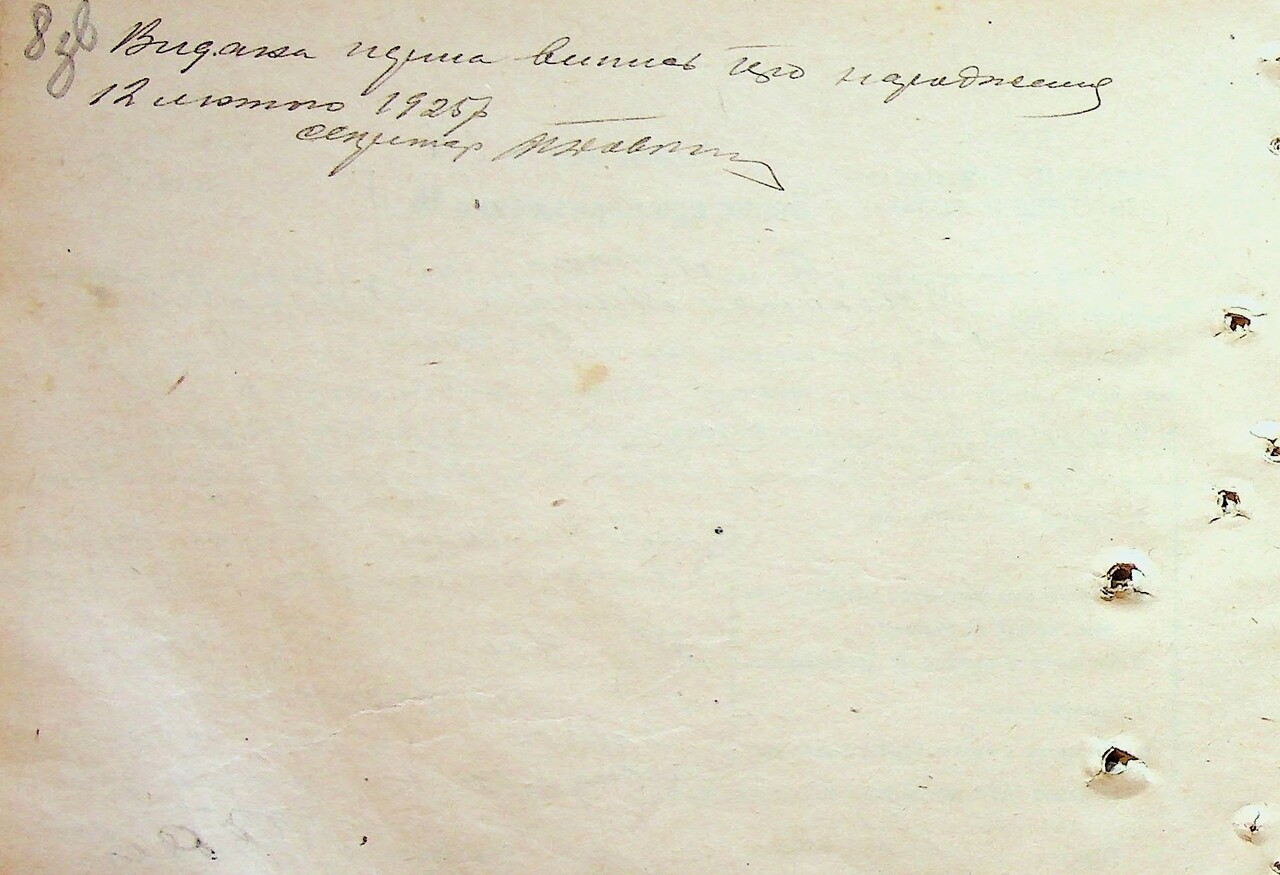 8зв Видана перша випись про народження
12 лютого 1925р
секретар